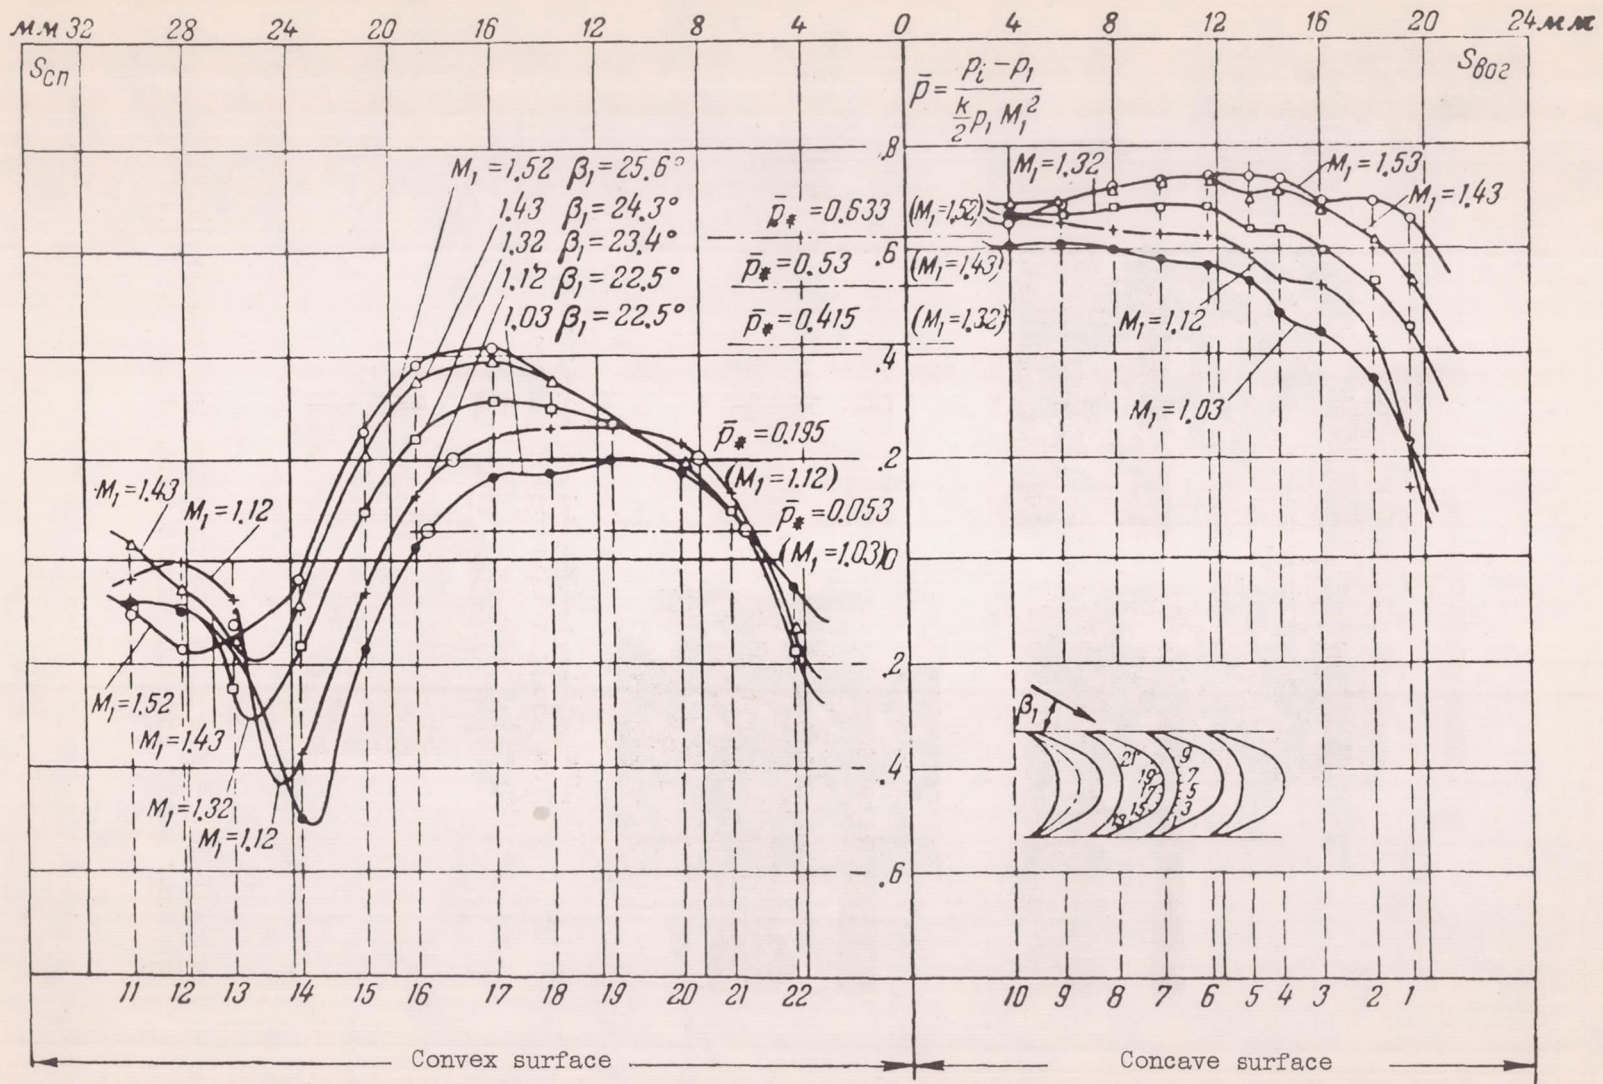 мм 32 28 24 20 16 12 8 4 0 4 8 12 16 20 24 мм
Sсп
Sвог
p̄ = (pᵢ − p₁) / (k/2 p₁ M₁²)
.8
M₁=1.52 β₁=25.6°
1.43 β₁=24.3°
1.32 β₁=23.4°
1.12 β₁=22.5°
1.03 β₁=22.5°
p̄* =0.633 (M₁=1.52)
p̄* =0.53 .6 (M₁=1.43)
p̄* =0.415 (M₁=1.32)
.4
p̄* =0.195
.2
(M₁=1.12)
p̄* =0.053
(M₁=1.03)
0
M₁=1.32
M₁=1.53
M₁=1.43
M₁=1.12
M₁=1.03
M₁=1.43
M₁=1.12
M₁=1.52
M₁=1.43
M₁=1.32
M₁=1.12
.2
.4
.6
β₁
21 9
19 7
17 5
15 3
13 1
11 12 13 14 15 16 17 18 19 20 21 22 10 9 8 7 6 5 4 3 2 1
Convex surface Concave surface